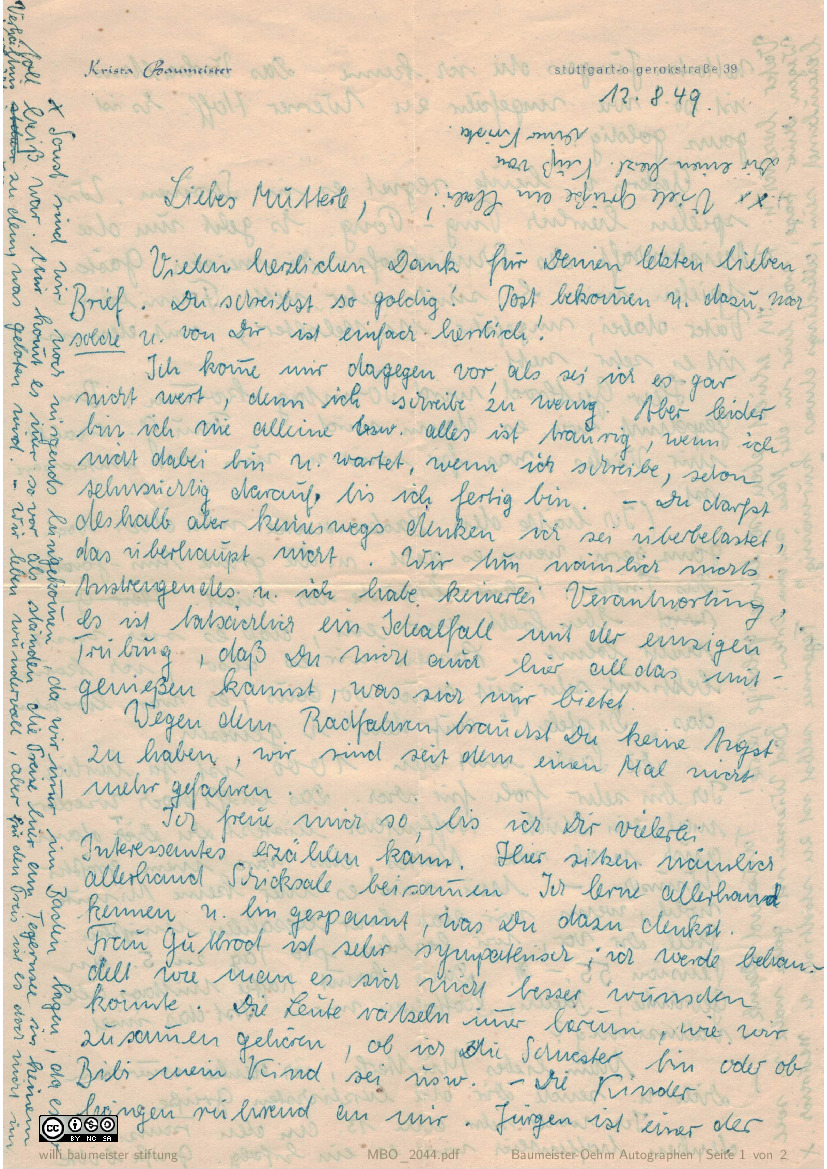 Krista Baumeister
stuttgart-o gerokstraße 39
12.8.49.
Liebes Mutterle,
Vielen herzlichen Dank für Deinen letzten lieben
Brief. Du schreibst so goldig! Post bekom̄en u. dazu nur
solche u. von Dir ist einfach herrlich!
Ich kom̄e mir dagegen vor, als sei ich es gar
nicht wert, denn ich schreibe zu wenig. Aber leider
bin ich nie alleine bzw. alles ist traurig, wenn ich
nicht dabei bin u. wartet, wenn ich schreibe, schon
sehnsüchtig darauf, bis ich fertig bin. – Du darfst
deshalb aber keineswegs denken ich sei überbelastet,
das überhaupt nicht. Wir tun nämlich nichts
Anstrengendes u. ich habe keinerlei Verantwortung,
es ist tatsächlich ein Idealfall mit der einzigen
Trübung, daß Du nicht auch hier all das mit-
genießen kannst, was sich mir bietet.
Wegen dem Radfahren brauchst Du keine Angst
zu haben, wir sind seit dem einen Mal nicht
mehr gefahren.
Ich freue mich so, bis ich Dir vielerlei
Interessantes erzählen kann. Hier sitzen nämlich
allerhand Schicksale beisam̄en. Ich lerne allerhand
kennen u. bin gespannt, was Du dazu denkst.
Frau Gutbrod ist sehr sympathisch, ich werde behan-
delt wie man es sich nicht besser wünschen
könnte. Die Leute rätseln im̄er herum, wie wir
zusam̄en gehören, ob ich die Schwester bin oder ob
Bibi mein Kind sei usw. – Die Kinder
hängen rührend an mir. Jürgen ist einer der
x Sonst sind wir noch nirgends hingekom̄en, da wir im̄er im Baden lagen, da es
toll heiß war. Mir kom̄t es im̄er so vor als ständen die Preise hier am Tegernsee in keinem
Verhältnis zu dem, was geboten wird. – Wir leben wundervoll, aber für den Preis ist es doch nicht im
x x Viele Grüße an
Dir einen herzl. Kuß von
Deiner Krista.
willi baumeister stiftung
MBO_2044.pdf
Baumeister-Oehm Autographen | Seite 1 von 2
CC BY NC SA